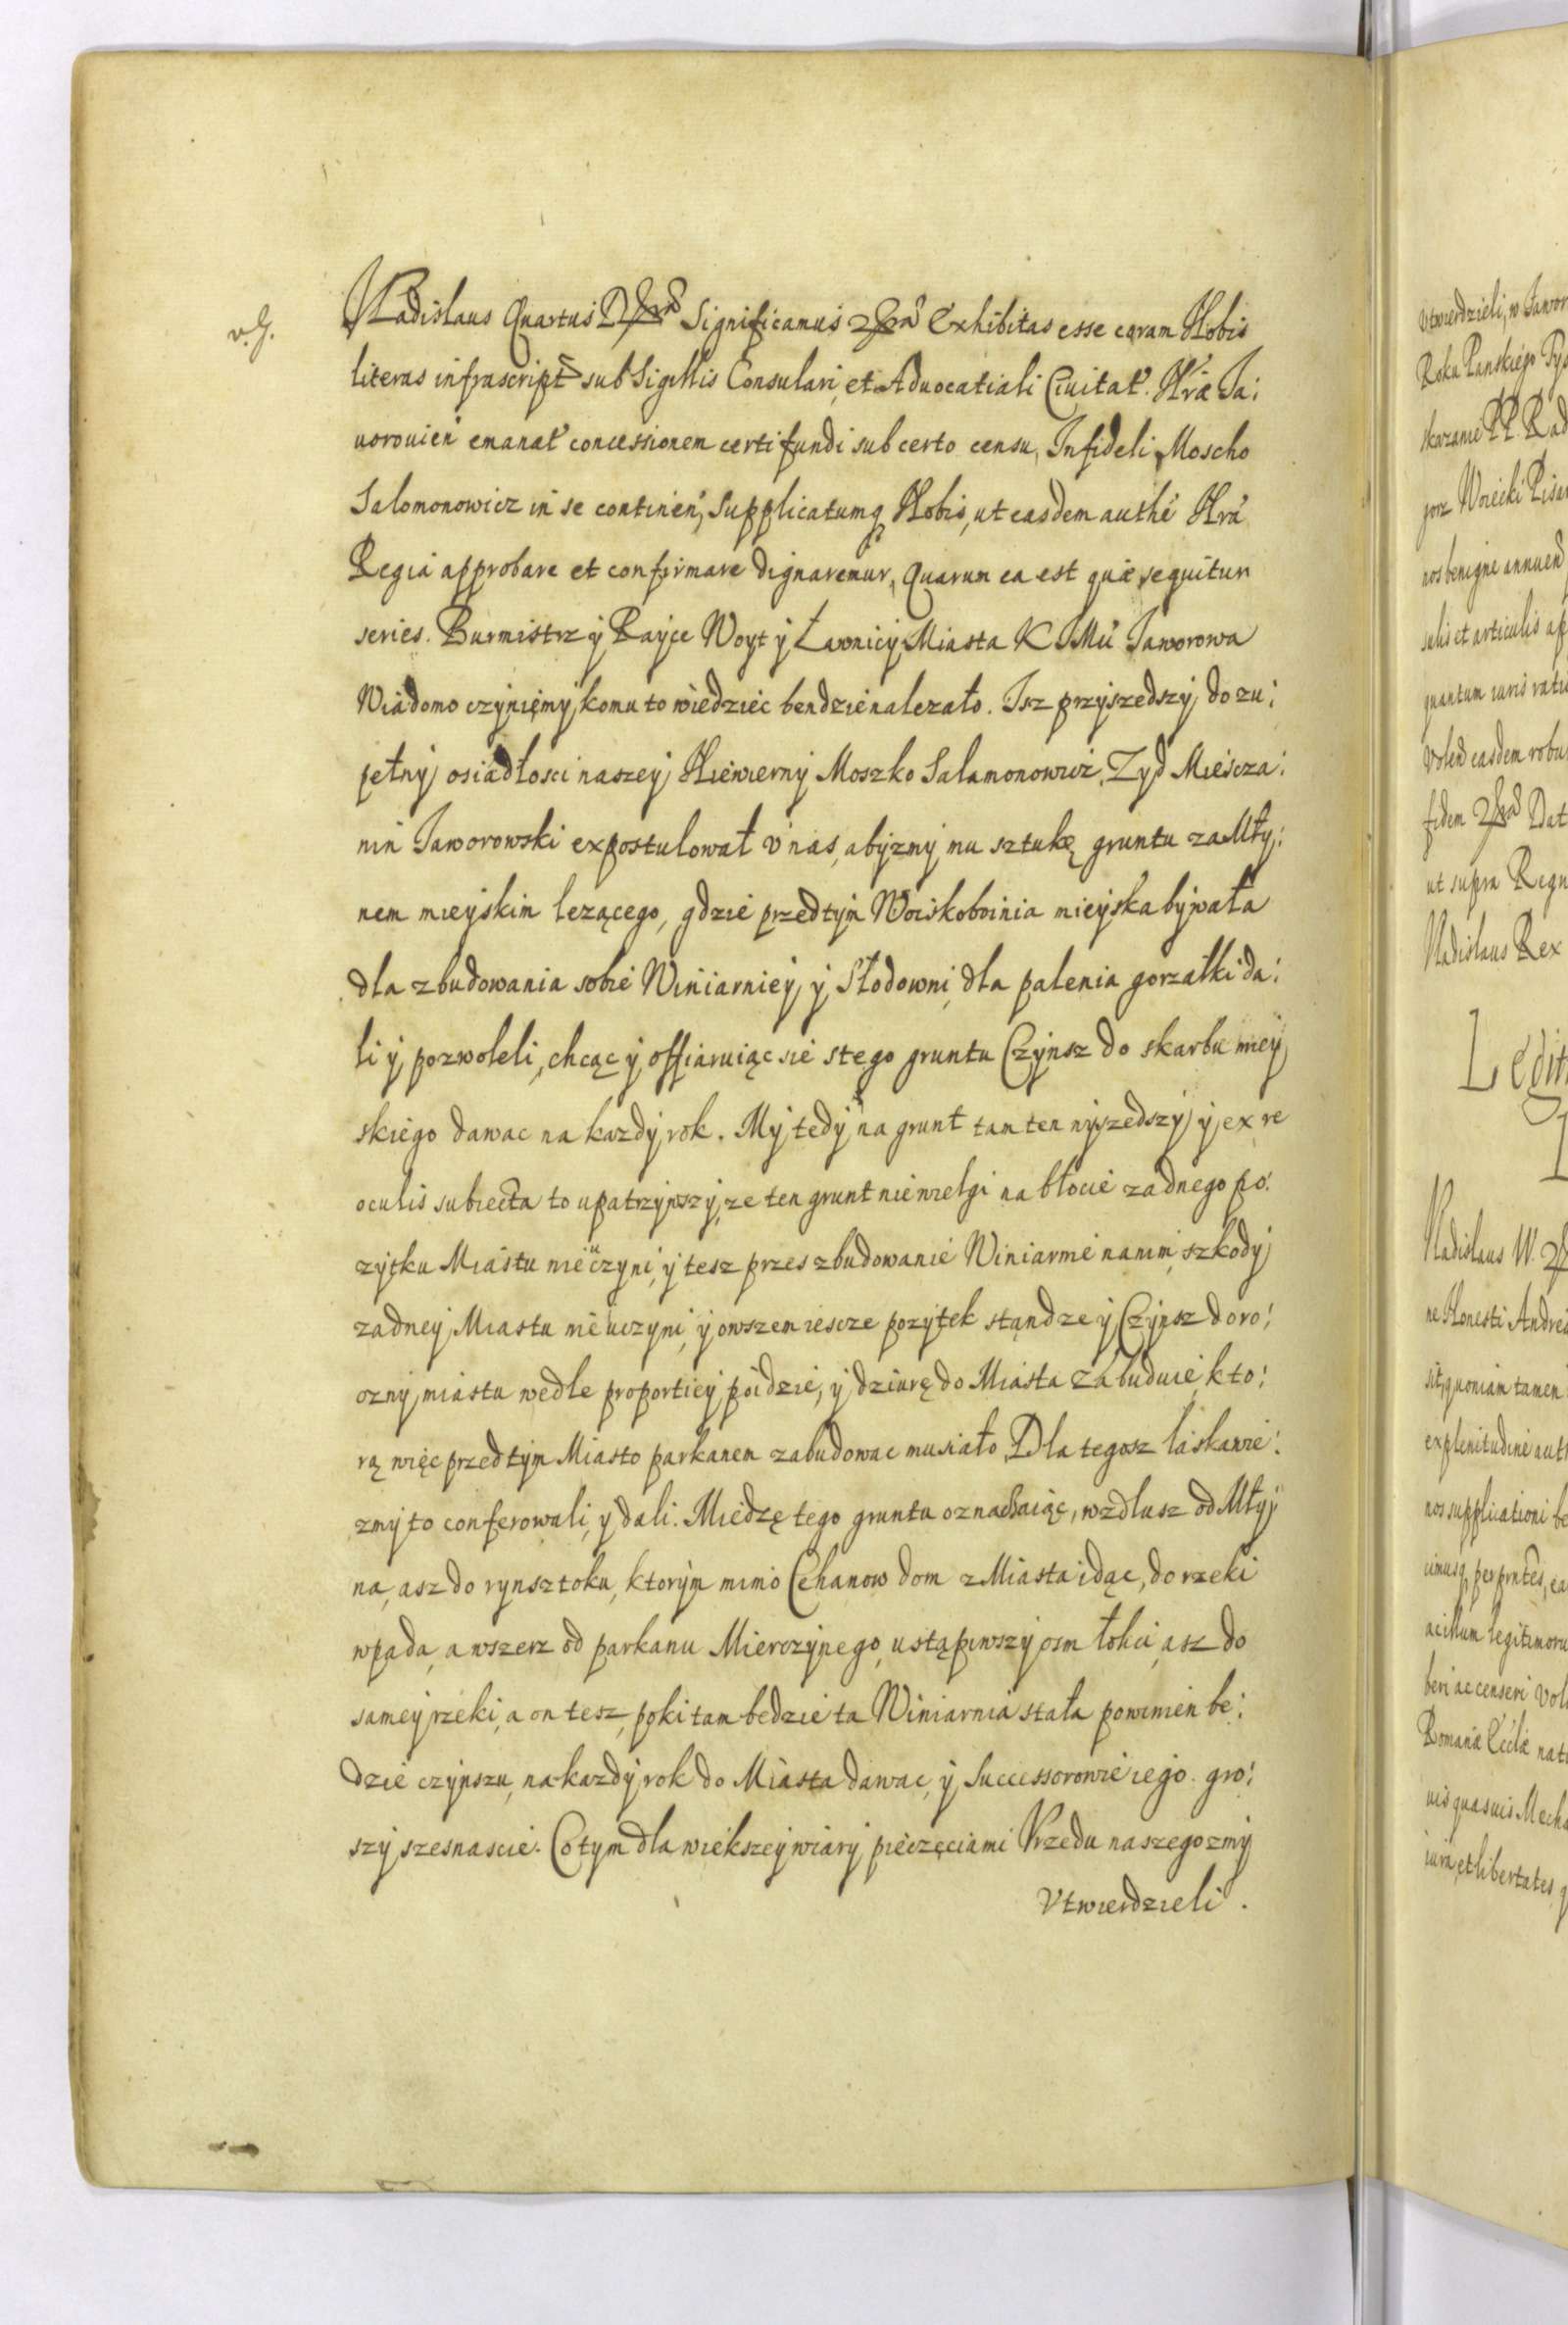 Vladislaus Quartus Significamus Exhibitas esse coram Nobis
literas infrascript sub Sigillis Consulari et Aduocatiali Ciuitat. Nræ Ja:
uorouien emanat concessionem certi fundi sub certo censu, Infideli Moscho
Salomonowicz in se continen, Supplicatumq Nobis, ut easdem authe Nrâ
Regia approbare et confirmare dignaremur, Quarum ea est quæ sequitur
series. Burmistrz ÿ Rayce Woyt ÿ Ławnicÿ Miasta K JMci Jaworowa
Wiadomo czyniemÿ, komu to wiedziec bendzie nalezało. Isz przyszedszÿ do zu:
pełnÿ osiadłosci naszeÿ Niewierny Moszko Salamonowicz, Zyd Miescza:
nin Jaworowski expostulował v nas, abyzmÿ mu sztukę gruntu za Młÿ:
nem mieÿskim lezącego, gdzie przedtÿm Woskoboinia mieÿska bywała
dla zbudowania sobie Winiarnieÿ ÿ Słodowni dla palenia gorzałki da:
li ÿ pozwoleli, chcąc ÿ offiaruiąc sie s tego gruntu Czynsz do skarbu mieÿ
skiego dawac na kazdÿ rok. Mÿ tedÿ na grunt tam ten wyszedszÿ ÿ ex re
oculis subiecta to upatrzywszÿ, ze ten grunt niewielgi na błocie zadnego po:
zytku Miastu nie uczyni, ÿ tesz przes zbudowanie Winiarnie namni szkodÿ
zadneÿ Miastu nie uczyni, ÿ owszem iescze pozytek stąnd ze ÿ Czynsz doro:
cznÿ miastu wedle proportieÿ poidzie, ÿ dziurę do Miasta zabuduie, kto:
rą więc przedtÿm Miasto parkanem zabudowac musiało, Dla tegosz łaskawie:
zmÿ to conferowali, ÿ dali. Miedzę tego gruntu oznachaiąc, wzdłusz od Młÿ
na, asz do rynsztoku, ktorym mimo Cehanow dom z Miasta idąc, do rzeki
wpada, a wszerz od parkanu Mierczynego, ustąpiwszÿ osm łokci, asz do
sameÿ rzeki, a on tesz, poki tam bedzie ta Winiarnia stała powinien be:
dzie czynszu, na kazdÿ rok do Miasta dawac, ÿ Successorowie iego. gro:
szÿ szesnascie. Co tym dla wiekszeÿ wiarÿ pieczęciami Vrzedu naszego zmÿ
Vtwierdzieli.
vtwierdzieli, w Jawor
Roku Panskiego Tys
skazanie PP. Rad
gorz Woiecki Pisar
nos benigne annuend
sulis et articulis ap
quantum iuris
Volend easdem robu
fidem Dat
ut supra Regn
Vladislaus Rex
Vladislaus IV.
ne Honesti Andrea
sit, quoniam tamen
ex plenitudine auth
nos supplicationi be
acillum legitimoru
beri ac censeri vol
Romanæ natu
iura, et libertates, q